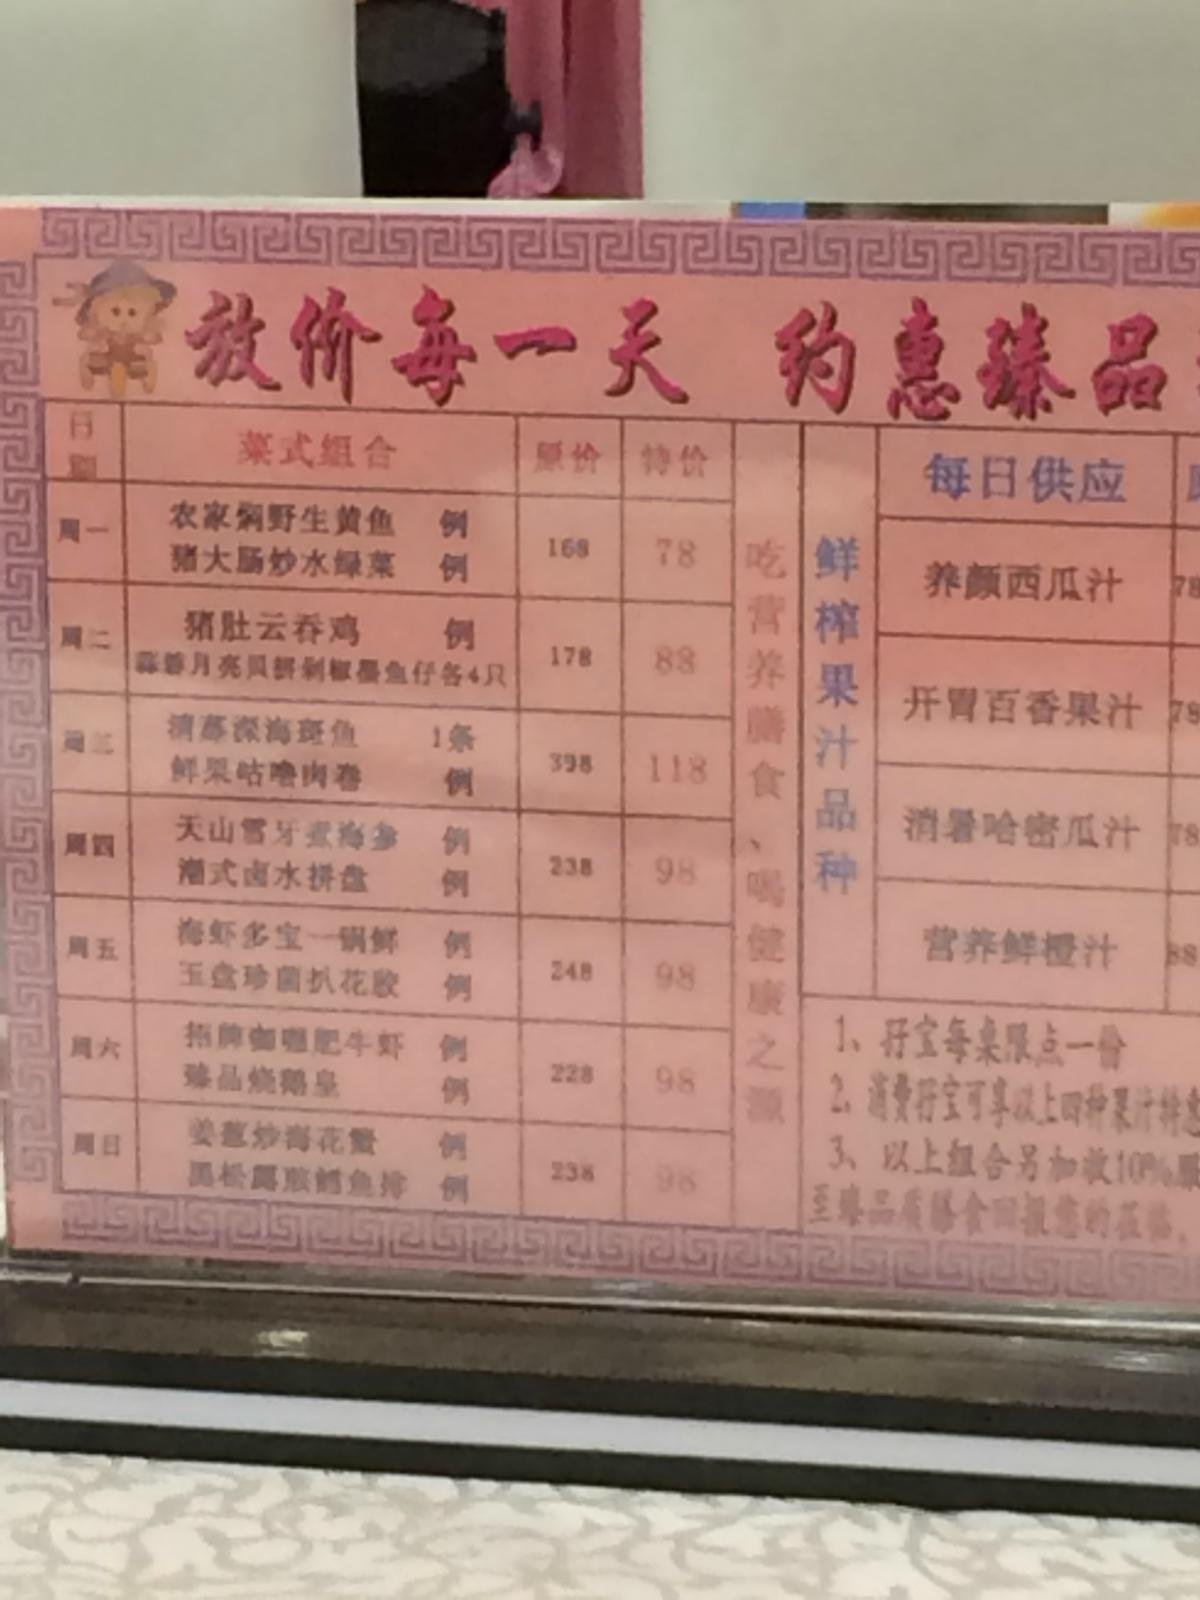 放价每一天 约惠臻品
日期 菜式组合 原价 特价
周一 农家焗野生黄鱼 例 168 78
猪大肠炒水绿菜 例
周二 猪肚云吞鸡 例 178 88
蒜蓉月亮贝拼剁椒墨鱼仔各4只
周三 清蒸深海斑鱼 1条 398 118
鲜果咕噜肉卷 例
周四 天山雪牙煮海参 例 238 98
潮式卤水拼盘 例
周五 海虾多宝一锅鲜 例 248 98
玉盘珍菌扒花胶 例
周六 招牌咖喱肥牛虾 例 228 98
臻品烧鹅皇 例
周日 姜葱炒海花蟹 例 238 98
黑松露煎鳕鱼排 例
吃营养膳食、喝健康之源
鲜榨果汁品种
每日供应
养颜西瓜汁 78
开胃百香果汁 78
消暑哈密瓜汁 78
营养鲜橙汁 88
1、孖宝每桌限点一份
2、消费孖宝可享以上四种果汁特
3、以上组合另加收10%
至臻品质膳食回报您的莅临